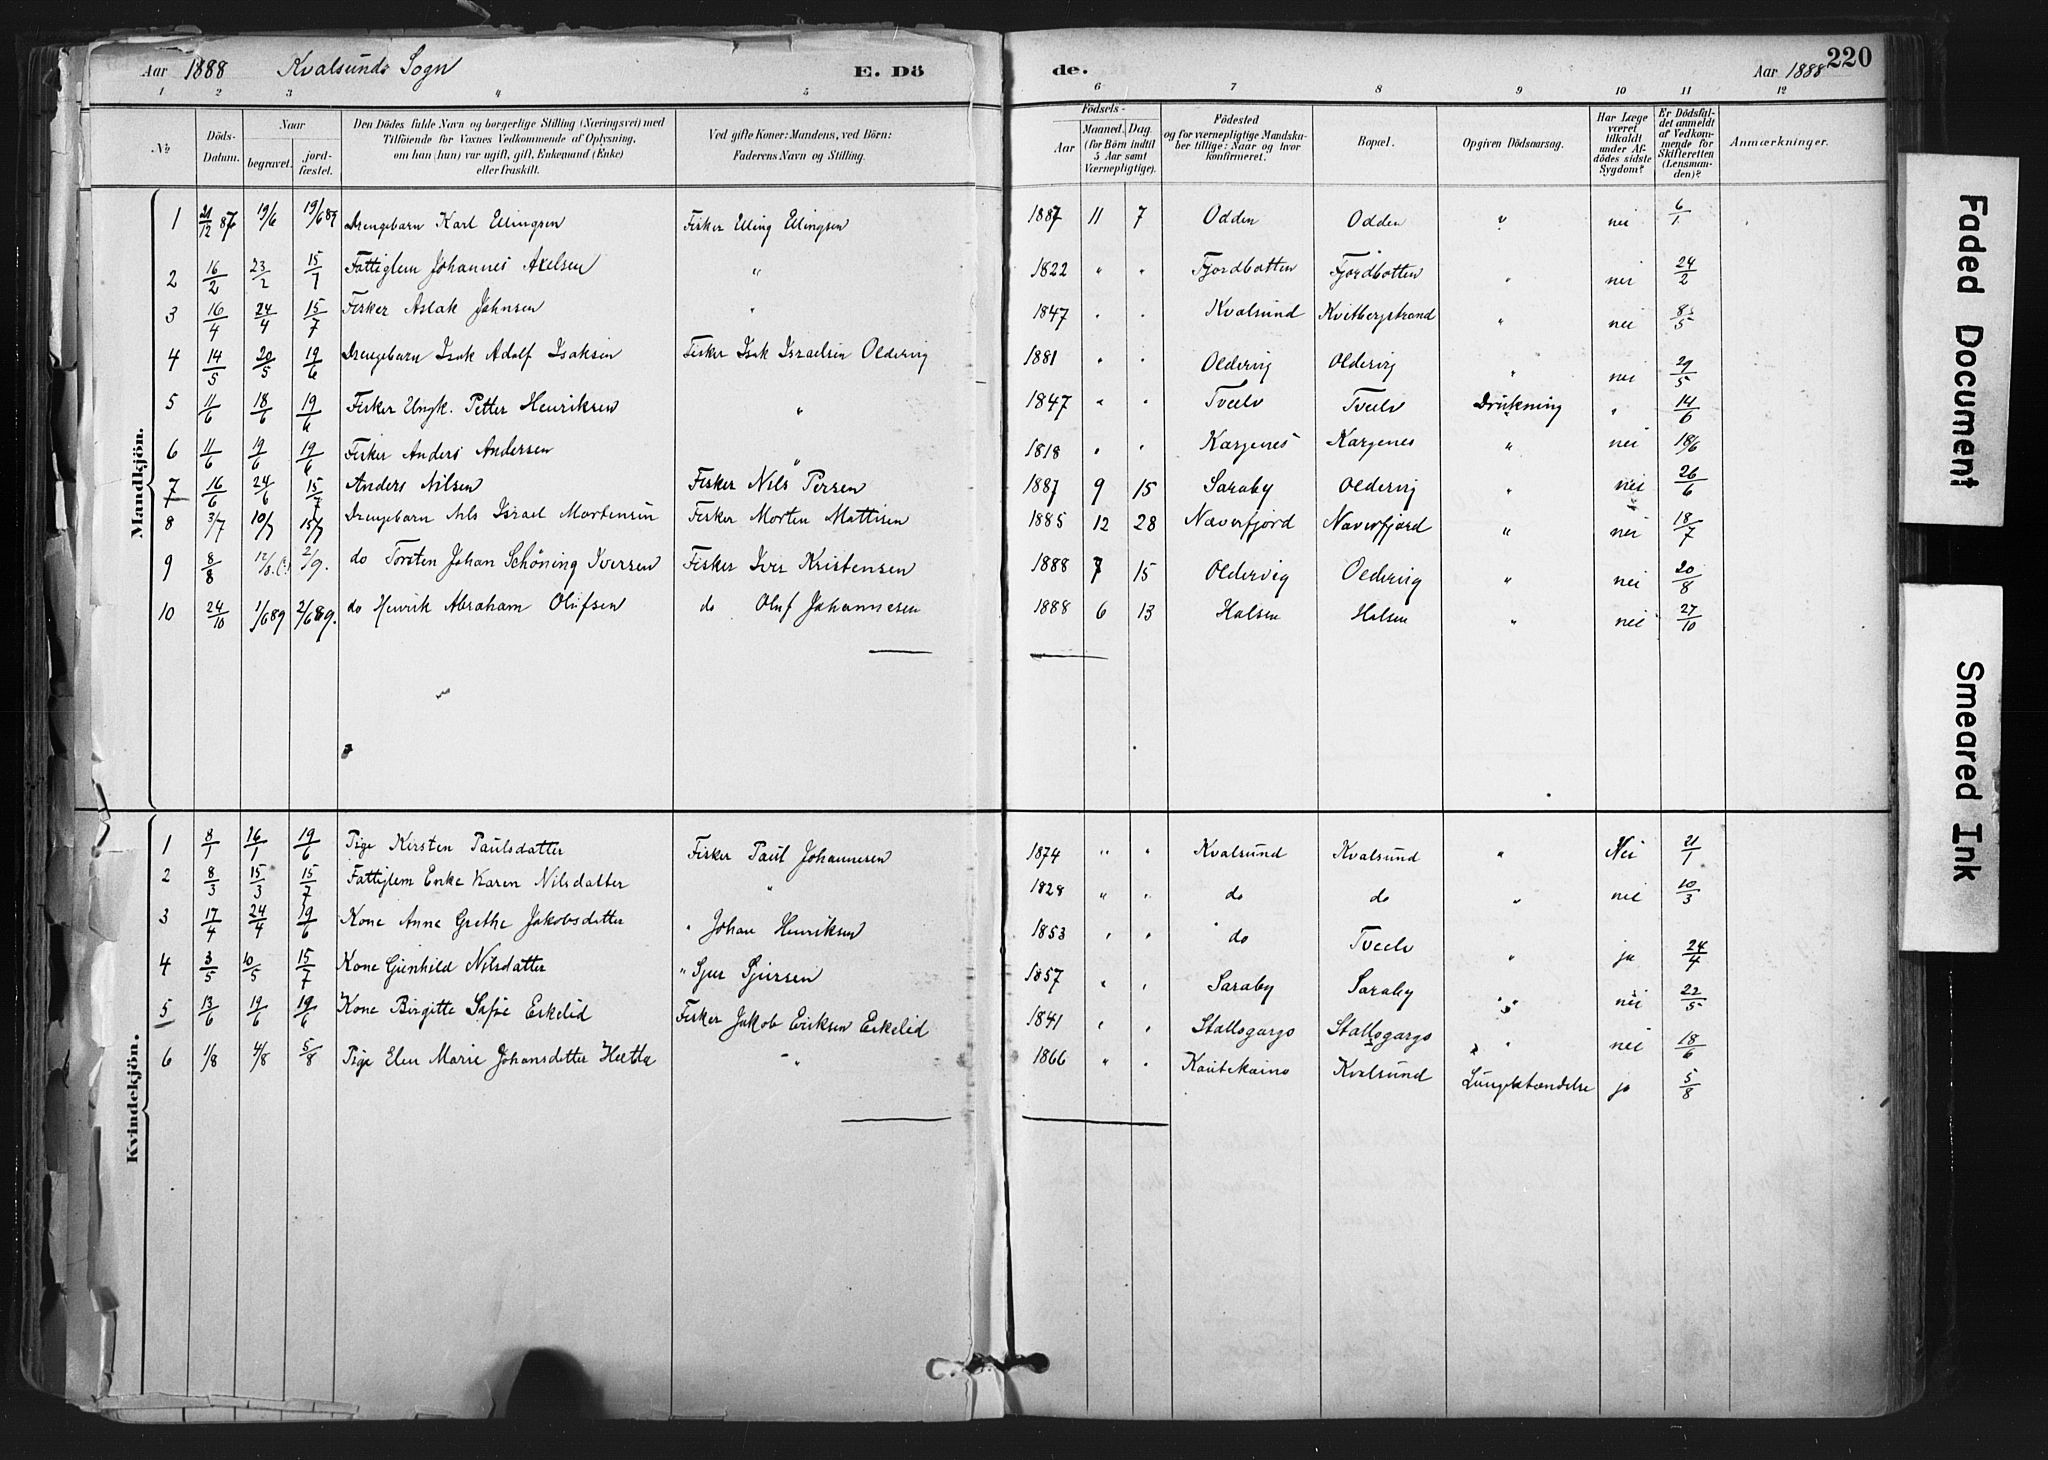 Aar 1888 Kvalsunds Sogn E. Döde. Aar 1888 220
1 2 3 4 5 6 7 8 9 10 11 12
No
Döds-Datum.
Naar begravet. jordfæstet.
Den Dödes fulde Navn og borgerlige Stilling (Næringsvei) med
Tilföiende for Voxnes Vedkommende af Oplysning,
om han (hun) var ugift, gift, Enkemand (Enke)
eller fraskilt.
Ved gifte Koner: Mandens, ved Börn:
Faderens Navn og Stilling.
Födsels-
Aar
Maaned. Dag.
(for Börn indtil 5 Aar samt Værnepligtige).
Födested
og for værnepligtige Mandskaber tillige: Naar og hvor konfirmeret.
Bopæl.
Opgiven Dödsaarsag.
Har Læge været tilkaldt under Afdödes sidste Sygdom?
Er Dödsfaldet anmeldt af Vedkommende for Skifteretten (Lensmanden)?
Anmærkninger.
Mandkjön.
1 21/12 87 19/6 19/6 89 Drengebarn Karl Ellingsen Fisker Elling Ellingsen 1887 11 7 Odden Odden " nei 6/1
2 16/2 23/2 15/7 Fattiglem Johannes Axelsen " 1822 " " Fjordbotten Fjordbotten " nei 24/2
3 16/4 24/4 15/7 Fisker Aslak Johnsen " 1847 " " Kvalsund Kvitbergstrand " nei /5
4 14/5 20/5 19/6 Drengebarn Isak Adolf Isaksen Fisker Isak Israelsen Oldervig 1881 " " Oldervig Oldervig " nei 29/5
5 11/6 18/6 19/6 Fisker Ungk. Petter Henriksen " 1847 " " Tveelv Tveelv Drukning " 14/6
6 11/6 19/6 19/6 Fisker Anders Andersen " 1818 " " Kargenes Kargenes " nei 18/6
7 16/6 24/6 15/7 Anders Nilsen Fisker Nils Persen 1887 9 15 Saraby Oldervig " nei 26/6
8 3/7 10/7 15/7 Drengebarn Nils Israel Mortensen Fisker Morten Mattisen 1885 12 28 Næverfjord Næverfjord " nei 18/7
9 8/8 12/8 (?) 2/9. do Torsten Johan Schöning Iversen Fisker Iver Kristensen 1888 7 15 Oldervig Oldervig " nei 20/8
10 24/10 1/6 89 2/6 89. do Henrik Abraham Olufsen do Oluf Johannesen 1888 6 13 Halsen Halsen " nei 27/10
Kvindekjön.
1 8/1 16/1 19/6 Pige Kirsten Paulsdatter Fisker Paul Johannesen 1874 " " Kvalsund Kvalsund " Nei 21/1
2 8/3 15/3 15/7 Fattiglem Enke Karen Nilsdatter " 1828 " " do do " nei 10/3
3 17/4 24/4 19/6 Kone Anne Grethe Jakobsdatter " Johan Henriksen 1853 " " do Tveelv " ja 24/4
4 3/5 10/5 15/7 Kone Gunhild Nilsdatter " Sjur Sjursen 1857 " " Saraby Saraby " nei 22/5
5 13/6 19/6 19/6 Kone Birgitte Sofie Eskelid Fisker Jakob Eriksen Eskelid 1841 " " Stallogargo Stallogargo " nei 18/6
6 1/8 4/8 5/8 Pige Elen Marie Johansdatter Hætta " 1866 " " Kautokaino Kvalsund Lungebtændelse ja 5/8
Faded Document
Smeared Ink